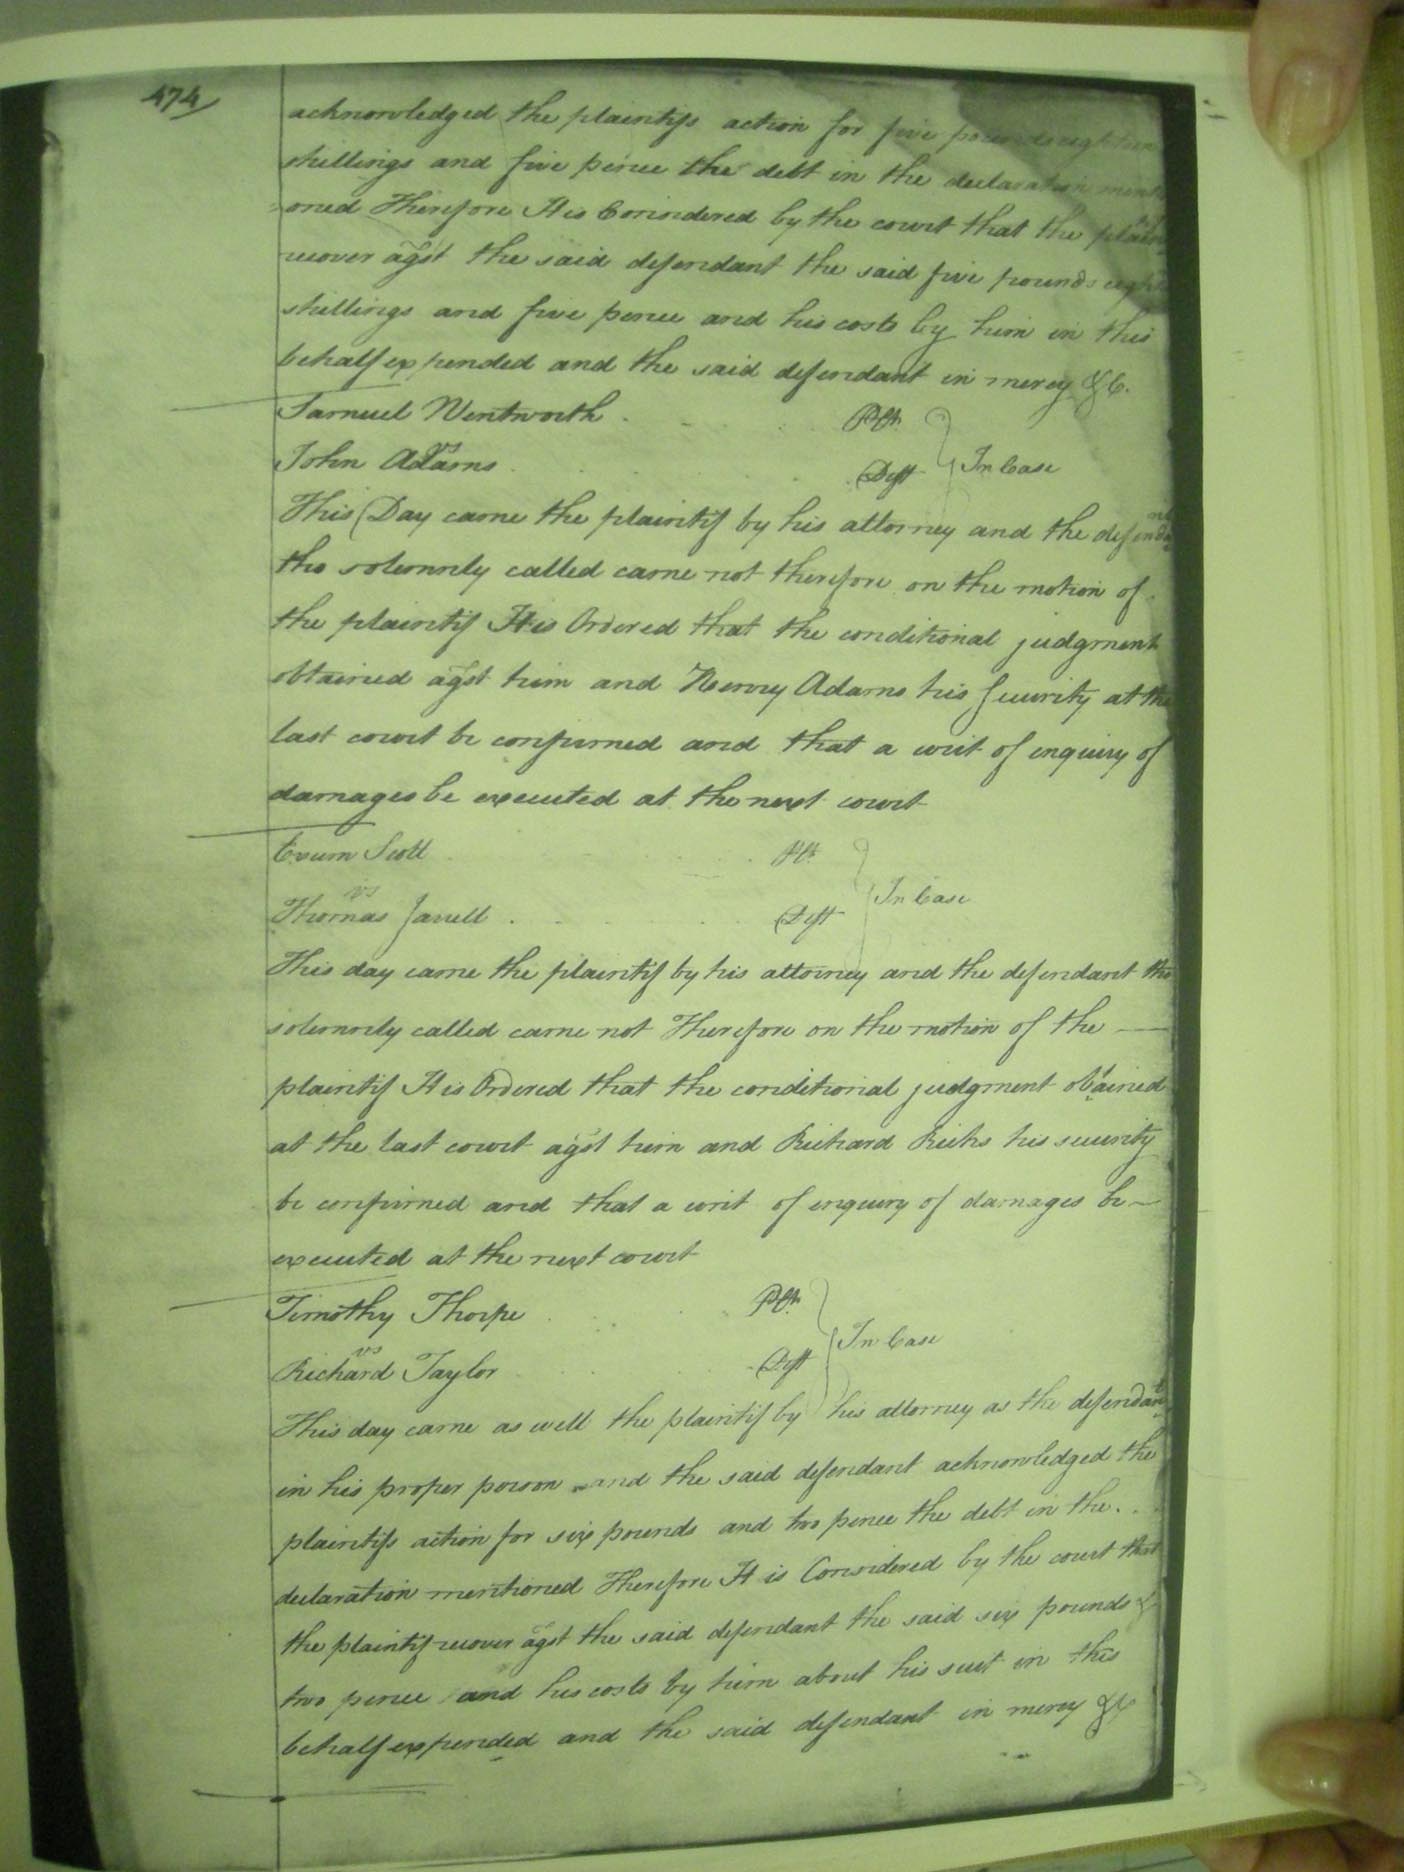 474
acknowledged the plaintifs action for five pounds eighteen
shillings and five pence the debt in the declaration ment
oned Therefore It is Considered by the court that the plain
recover agst the said defendant the said five pounds eight
shillings and five pence and his costs by him in this
behalf expended and the said defendant in mercy &C.
Samuel Wentworth Plt
vs
John Adams Deft In Case
This Day came the plaintif by his attorney and the defendant
tho solemnly called came not therefore on the motion of
the plaintif It is Ordered that the conditional judgment
obtained agst him and Henry Adams his Security at the
last court be confirmed and that a writ of enquiry of
damages be executed at the next court
Exum Scott Plt
vs
Thomas Jarrell Deft In Case
This day came the plaintif by his attorney and the defendant tho
solemnly called came not Therefore on the motion of the
plaintif It is Ordered that the conditional judgment obtained
at the last court agst him and Richard Ricks his security
be confirmed and that a writ of inquiry of damages be
executed at the next court
Timothy Thorpe Plt
vs
Richard Taylor Deft In Case
This day came as well the plaintif by his attorney as the defendant
in his proper person and the said defendant acknowledged the
plaintifs action for six pounds and two pence the debt in the
declaration mentioned Therefore It is Considered by the court that
the plaintif recover agst the said defendant the said six pounds &
two pence and his costs by him about his suit in this
behalf expended and the said defendant in mercy &c